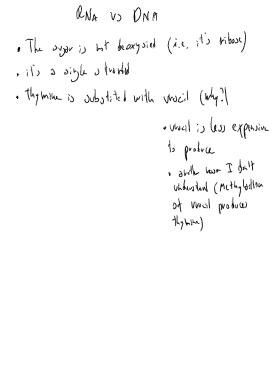 RNA vs DNA
• The sugar is not deoxysied (i.e. it's ribose)
• it's a single stranded
• Thymine is substited with uracil (Why?)
• uracil is less expensive
to produce
• reason I don't
understand (Methylation
of uracil produces
thymine)